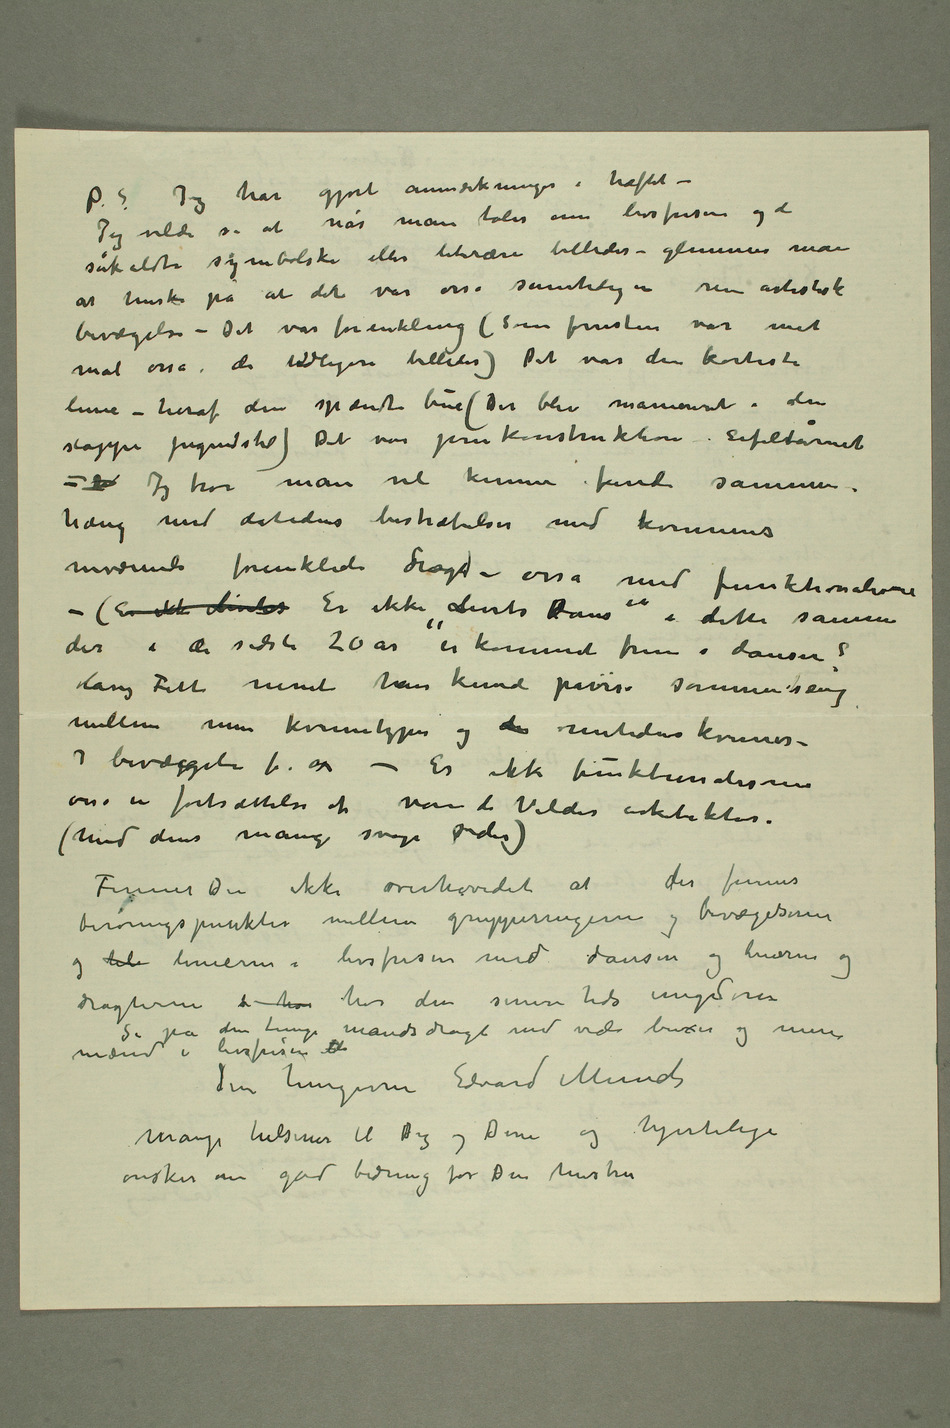 P.S. Jeg har gjort anmerkninger i hæftet –
Jeg vilde si at når man taler om livsfrisen og de
såkaldte symbolske eller literære billeder – glemmer man
at huske på at det var osså samtidig en ren artistisk
bevægelse – Det var forenkling (Som frusten var mit
mål osså i de tidligere billeder) Det var den korteste
linie – heraf den spændte bue (Der blev manieret i den
slappe jugendstil) Det var jernkonstruktion – Eifeltårnet
– Jeg tror man vil kunne finde sammen-
hæng med datidens bestræbelser med kvinnens
nuværende forenklede dragt – osså med funktionalisme
– (Er ikke livets Er ikke „Livets Dans“ i dette samme
der i de sidste 20 år er kommet frem i dansen?
Harry Fett mente han kunde påvise sammenhæng
mellem min kvinnetype og de nutidens kvinner –
I bevægelse f. ex – Er ikke funktionalismen
osså en fortsættelse af van de Veldes arkitektur.
(med dens mange svage sider)
Finner Du ikke overhovedet at der finnes
berøringspunkter mellem grupperingerne og bevægelserne
og linierne i livsfrisen med dansen og linierne og
dragterne hos den senere tids ungdom
Se på den tunge mandsdragt med vide buxer og mine
mænd i livsfrisen
Din hengivne Edvard Munch
Mange hilsener til Dig og Dine og hjertelige
ønsker om god bedring for Din hustru